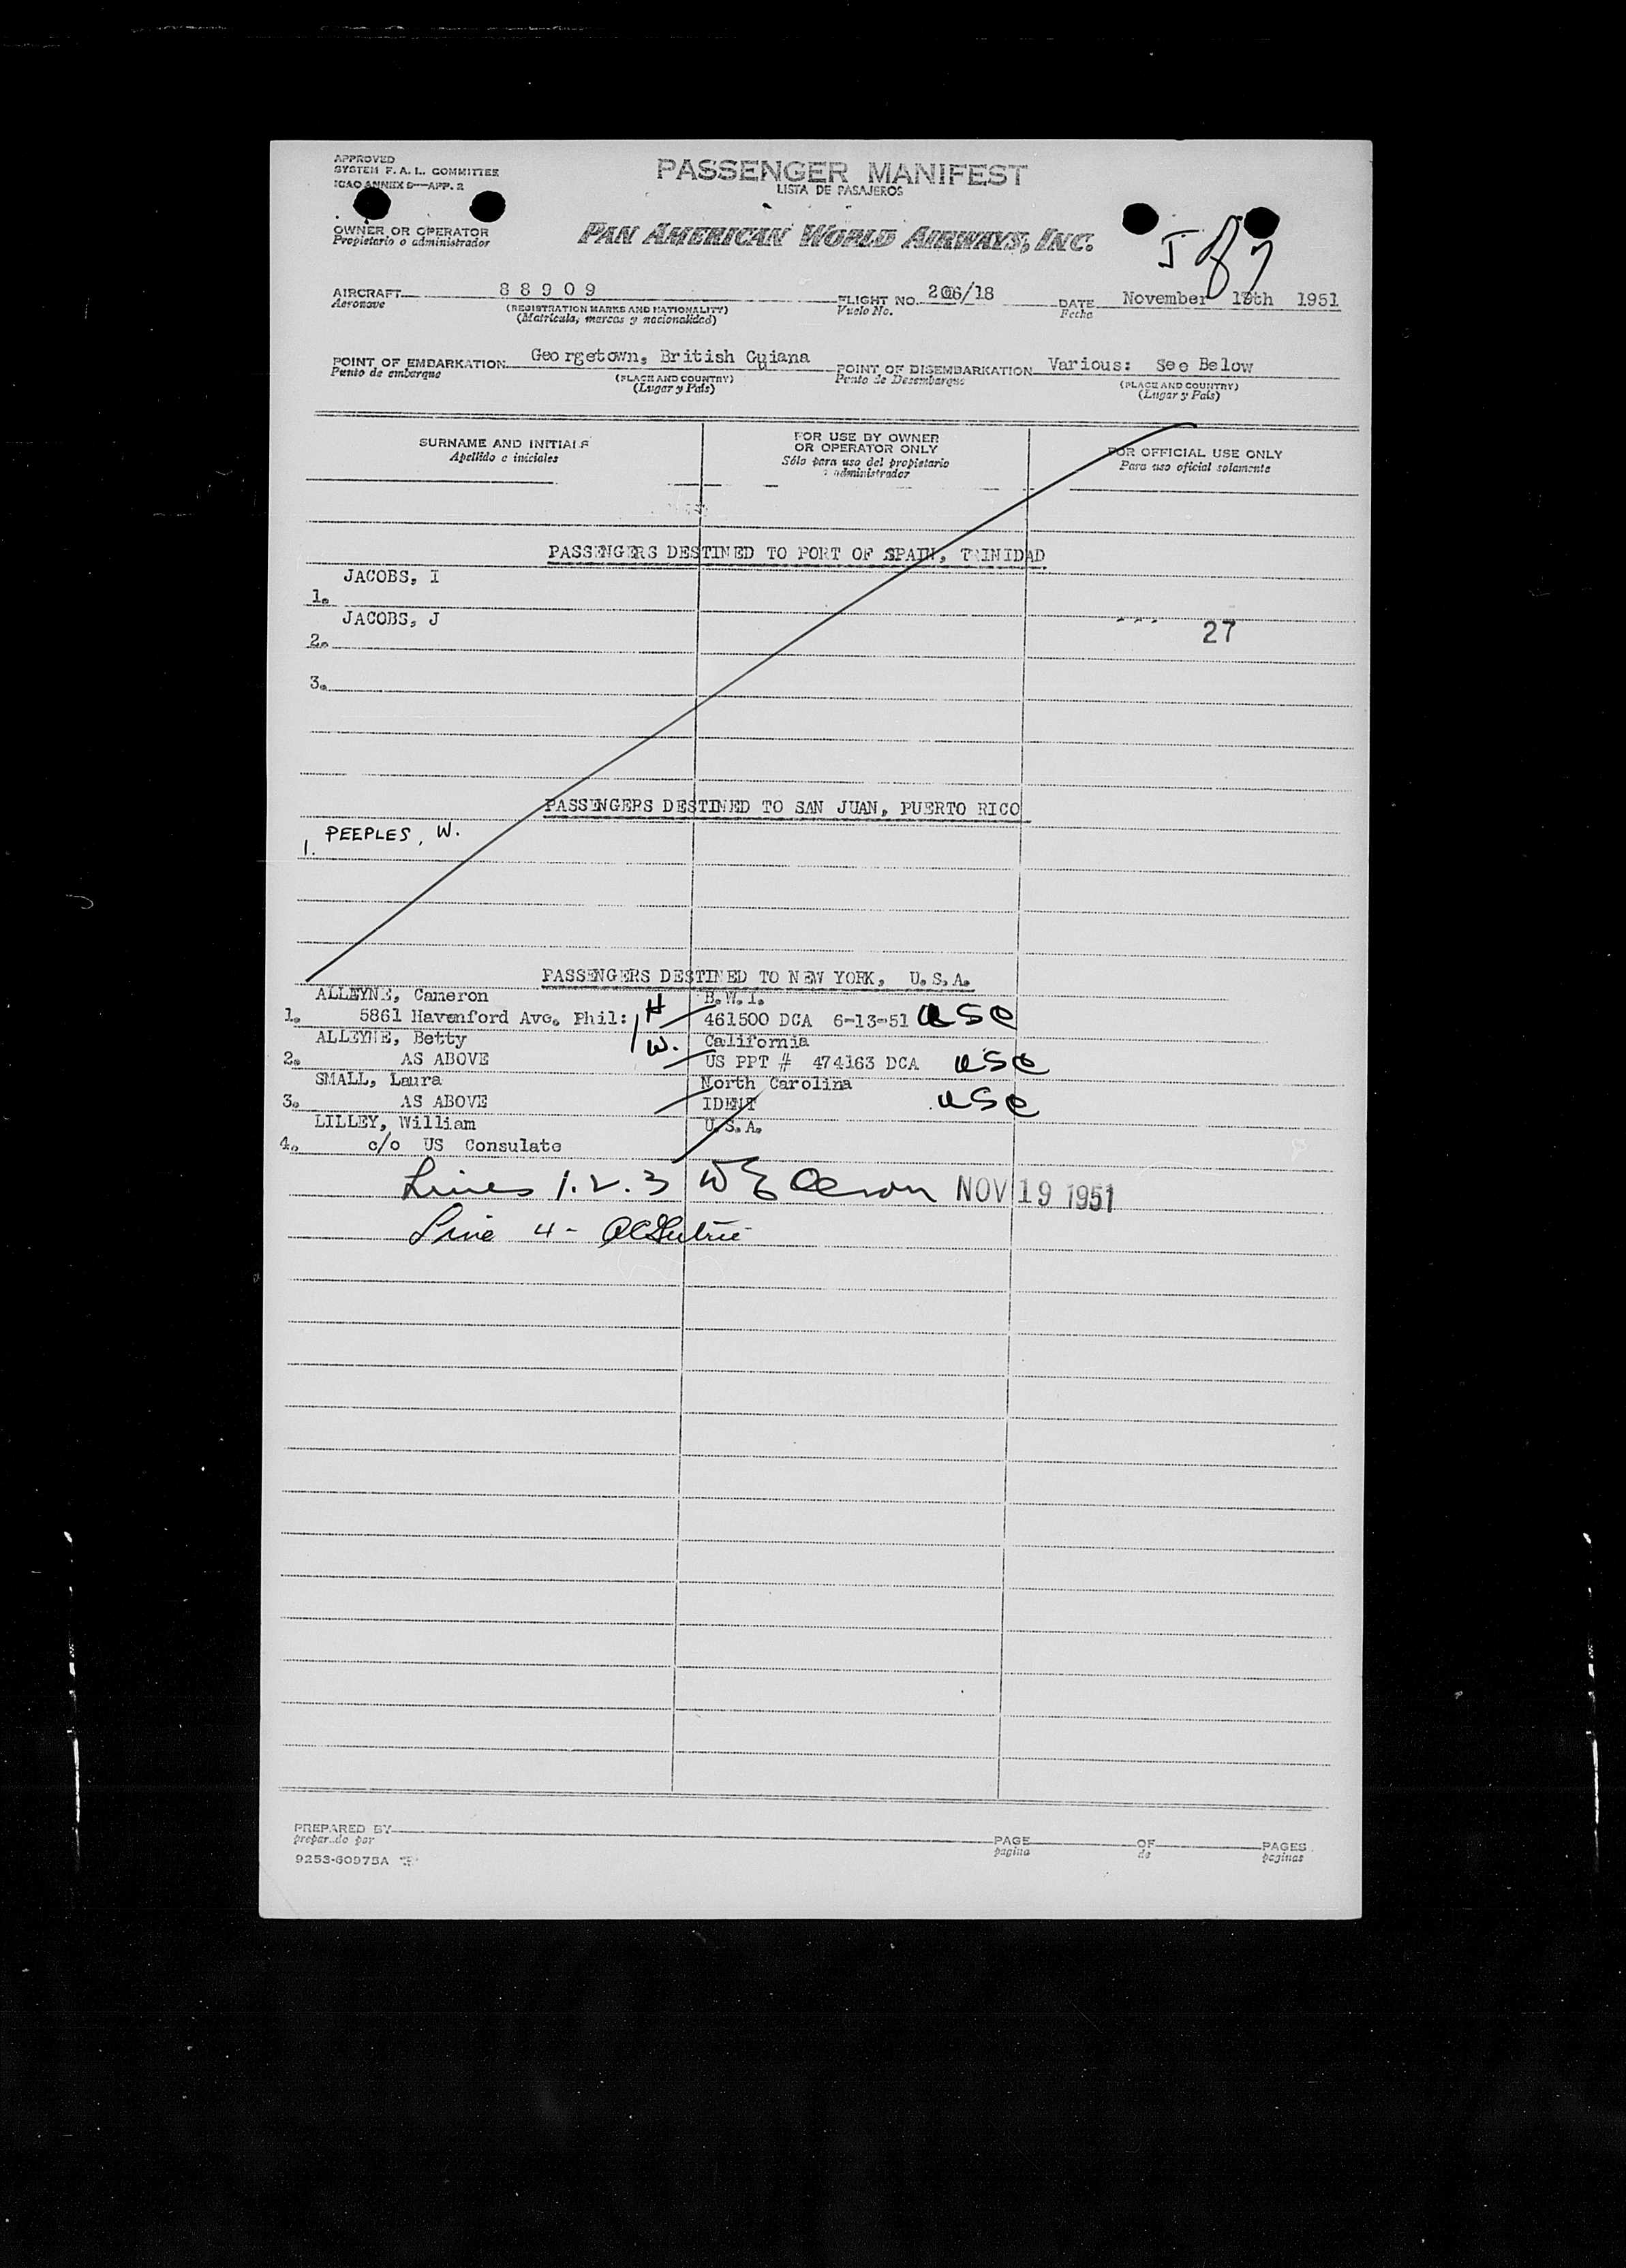 APPROVED
SYSTEM F. A. L. COMMITTEE
ICAO ANNEX 9—APP. 2
PASSENGER MANIFEST
LISTA DE PASAJEROS
OWNER OR OPERATOR
Propietario o administrador
PAN AMERICAN WORLD AIRWAYS, INC.
AIRCRAFT 88909
Aeronave
(REGISTRATION MARKS AND NATIONALITY)
(Matrícula, marcas y nacionalidad)
FLIGHT NO. 206/18
Vuelo No.
DATE November 19th 1951
Fecha
POINT OF EMBARKATION Georgetown, British Guiana
Punto de embarque
(PLACE AND COUNTRY)
(Lugar y País)
POINT OF DISEMBARKATION Various: See Below
Punto de Desembarque
(PLACE AND COUNTRY)
(Lugar y País)
SURNAME AND INITIALS
Apellido e iniciales
FOR USE BY OWNER
OR OPERATOR ONLY
Sólo para uso del propietario
administrador
FOR OFFICIAL USE ONLY
Para uso oficial solamente
PASSENGERS DESTINED TO PORT OF SPAIN, TRINIDAD
JACOBS, I
1.
JACOBS, J
27
2.
3.
PASSENGERS DESTINED TO SAN JUAN, PUERTO RICO
1. PEEPLES, W.
PASSENGERS DESTINED TO NEW YORK, U.S.A.
ALLEYNE, Cameron B.W.I.
1. 5861 Havenford Ave. Phil: H 461500 DCA 6-13-51 USC
ALLEYNE, Betty W. California
2. AS ABOVE US PPT # 474163 DCA USC
SMALL, Laura North Carolina
3. AS ABOVE IDENT USC
LILLEY, William U.S.A.
4. c/o US Consulate
Lines 1.2.3 NOV 19 1951
Line 4 -
PREPARED BY
preparado por
PAGE OF PAGES
pagina de paginas
9253-60975A